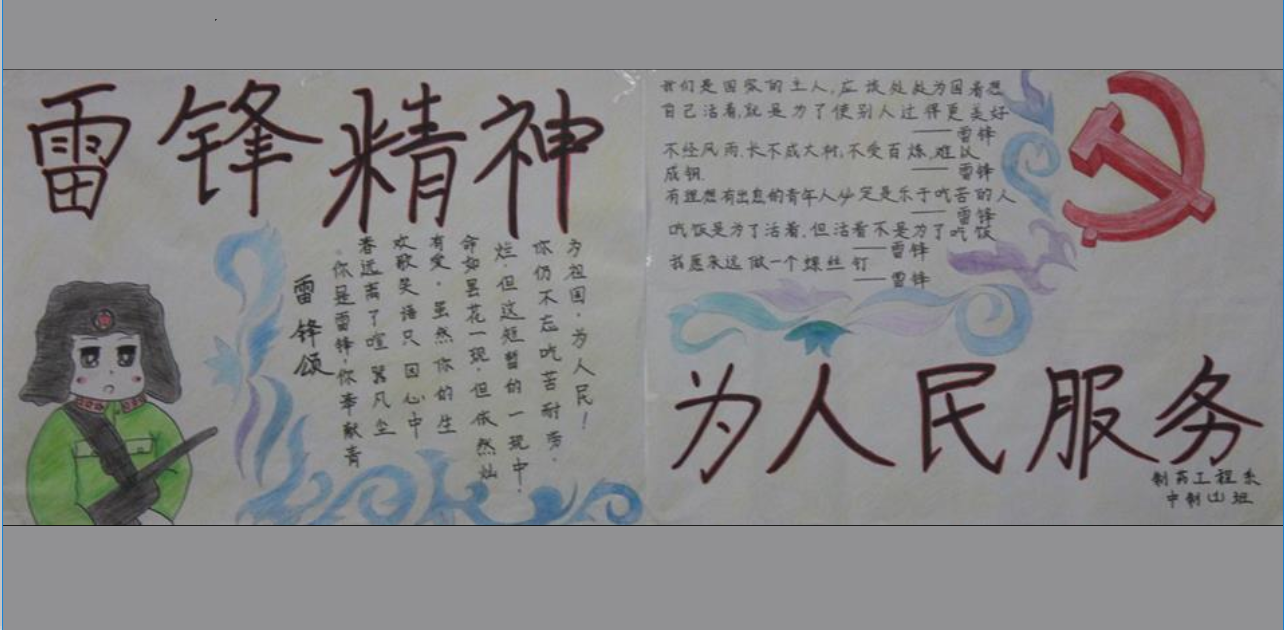 雷锋精神
雷锋颂
你是雷锋,你奉献青
春远离了喧嚣凡尘
欢歌笑语只因心中
有爱。虽然你的生
命如昙花一现,但依然灿
烂,但这短暂的一现中,
你仍不忘吃苦耐劳,
为祖国,为人民!
我们是国家的主人,应该处处为国着想
自己活着,就是为了使别人过得更美好
——雷锋
不经风雨,长不成大树,不受百炼,难以
成钢. ——雷锋
有理想有出息的青年人必定是乐于吃苦的人
——雷锋
吃饭是为了活着,但活着不是为了吃饭
——雷锋
我愿永远做一个螺丝钉
——雷锋
为人民服务
制药工程系
中制班